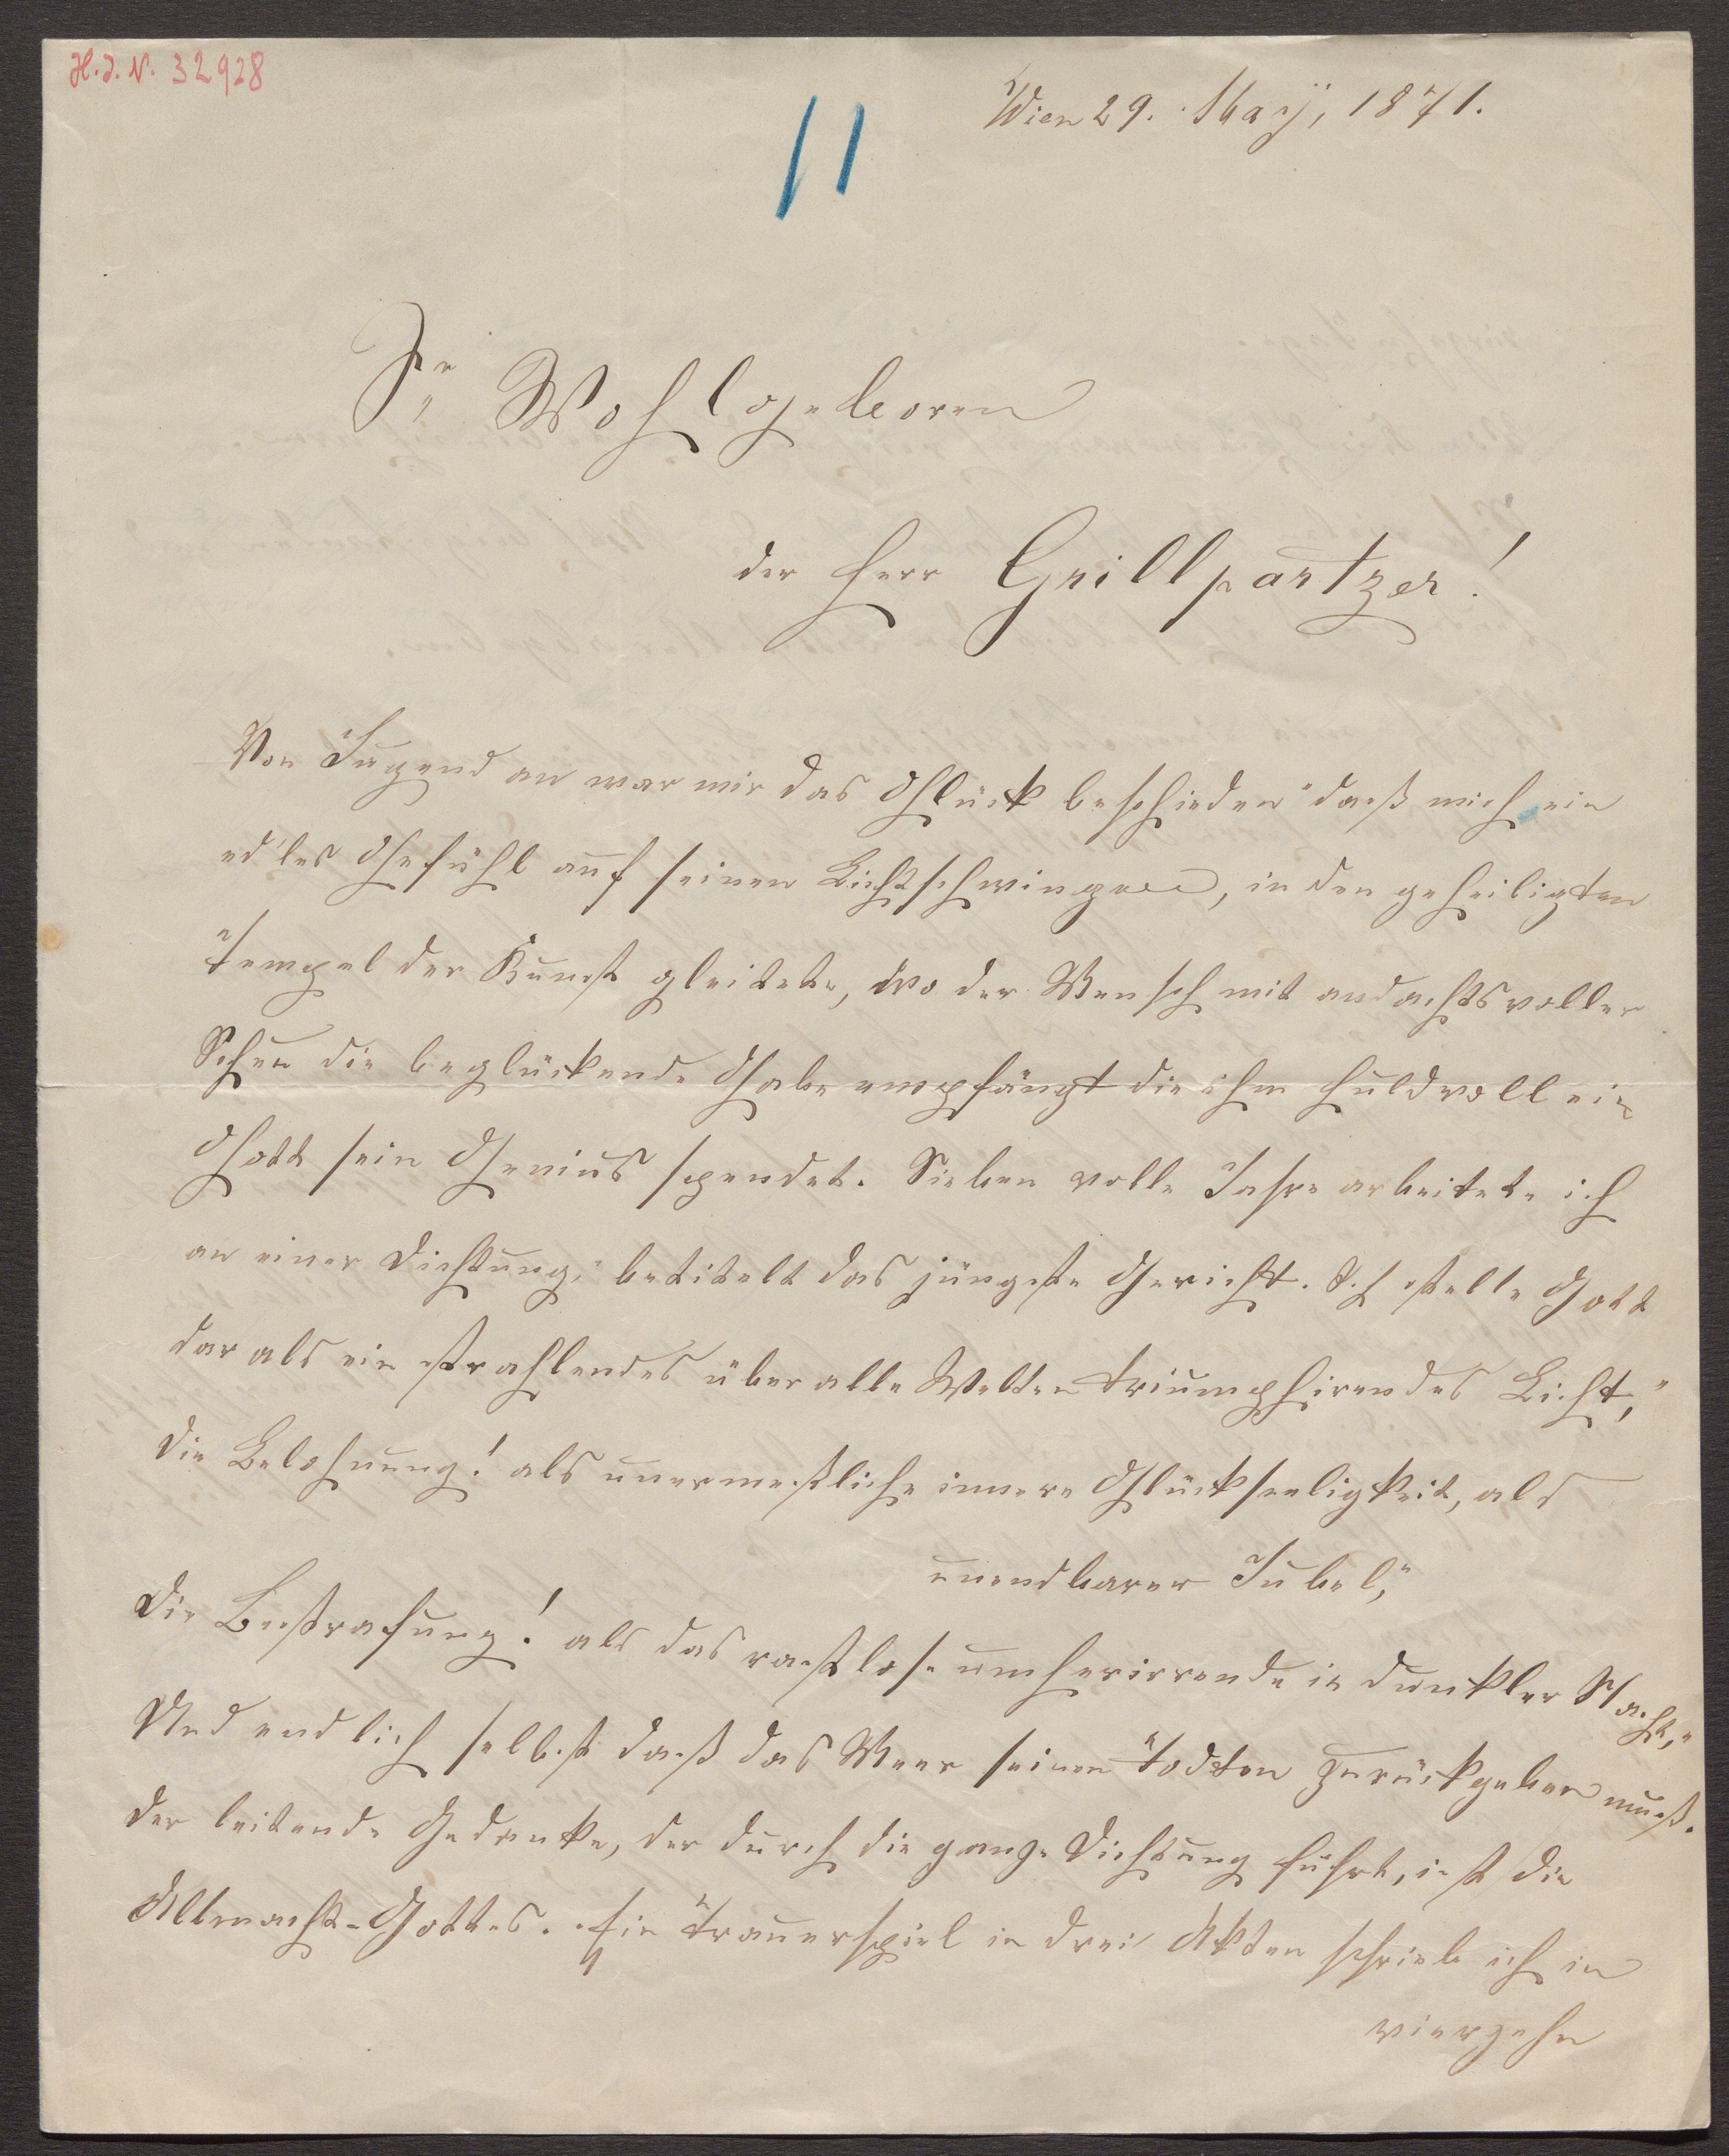 H.I.N. 32928
Wien 29. Maÿ, 1871.
11
Sr Wohlgeboren
der Herr Grillpartzer!
Von Jugend an war mir das Glück beschieden" daß mich ein
ed'les Gefühl auf seinen Lichtschwingen, in den geheiligten
Tempel der Kunst gleitete, wo der Mensch mit andachtsvoller
Scheu die beglückende Gabe empfängt die ihm huldvoll ein
Gott sein Genius spendet. Sieben volle Jahre arbeitete ich
an einer Dichtung," betitelt das jüngste Gericht. Ich stelle Gott
dar als ein strahlendes über alle Welten triumphirendes Licht,"
die Belohnung! als unermeßliche innere Glückseeligkeit, als
unendbarer Jubel,"
die Bestrafung! als das rastlose umherirrende in dunkler Nacht,"
Und endlich selbst daß das Meer seinen Todten zurückgeben muß.
der leitende Gedanke, der durch die ganze Dichtung führt, ist die
Allmacht-Gottes. Ein Trauerspiel in drei Akten schrieb ich in
vierzehn